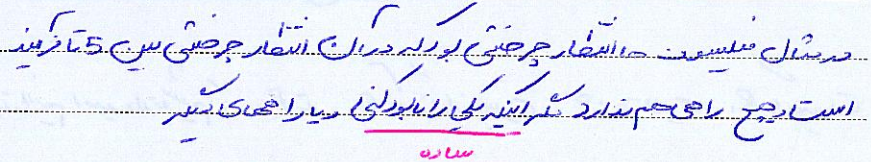 در مثال فیلسوف ها انتظار چرخشی بود که در آن انتظار چرخشی بین 5 تا فرآیند
است و هیچ راهی هم ندارد مگر اینکه یکی را نابود کنی و یا راههای دیگر
ساده